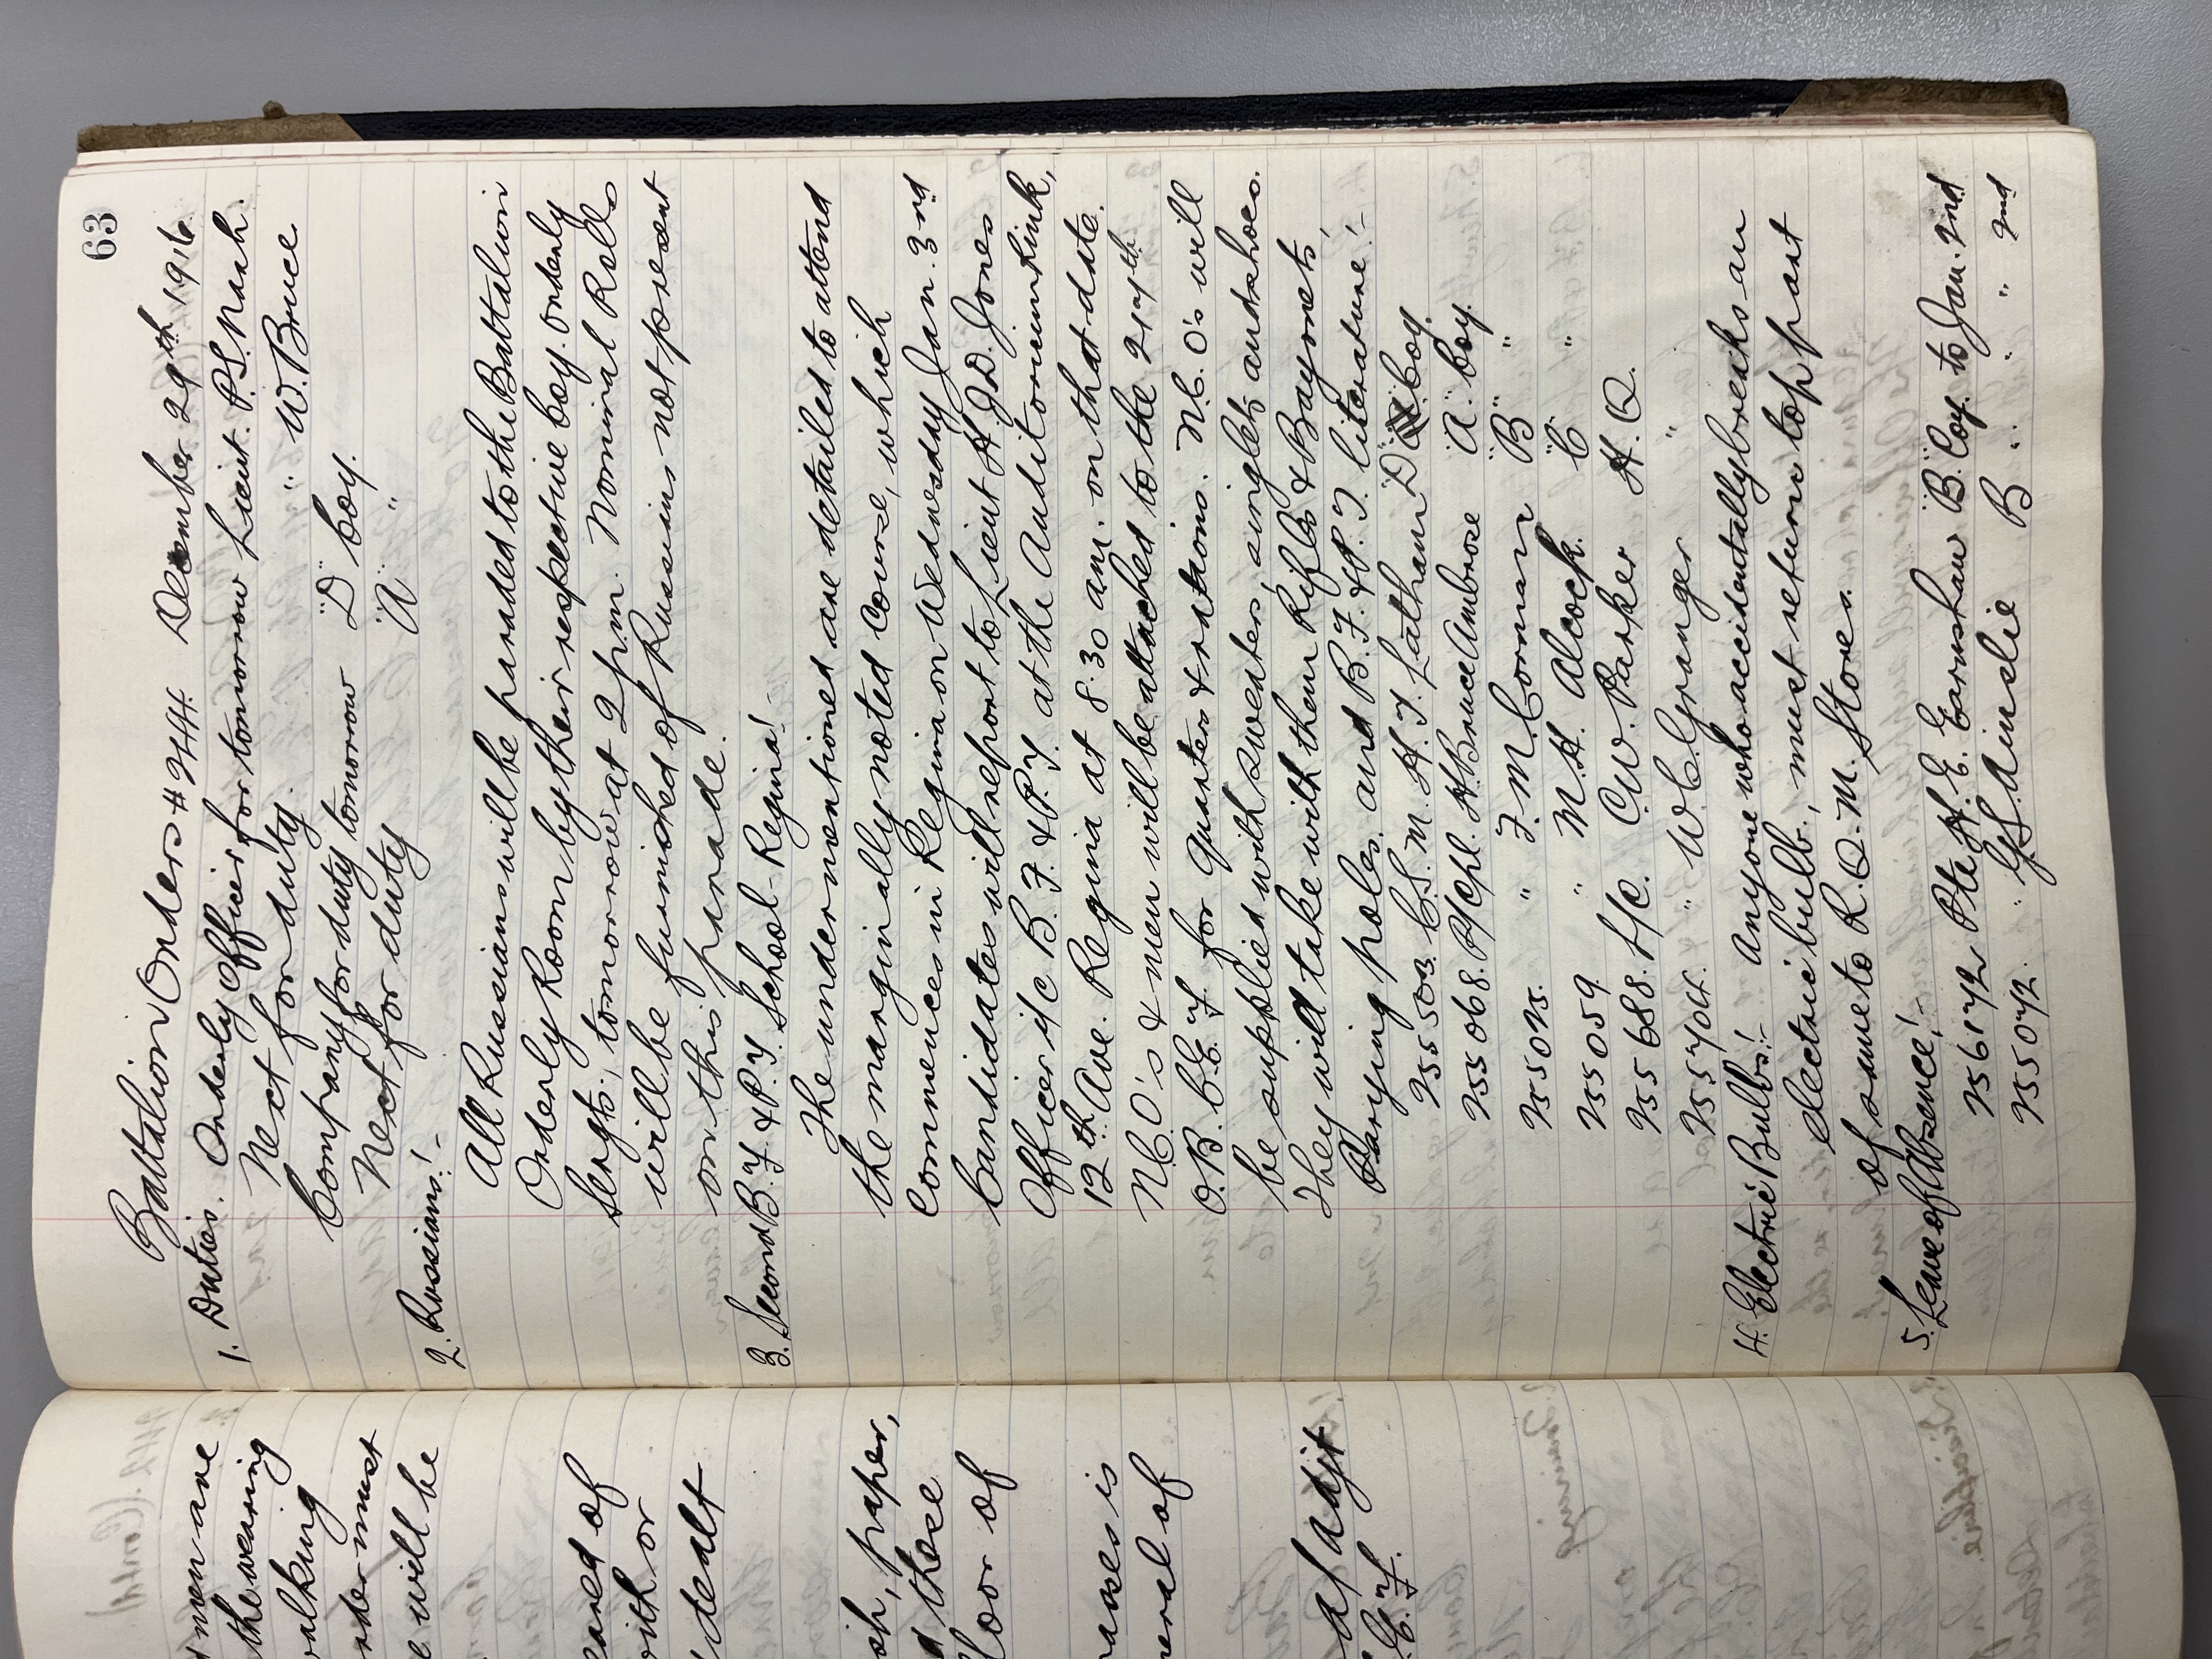 63
Battalion Orders # 244. December 29th 1916.
1. Duties. Orderly Officer for tomorrow Lieut. P.S. Nash.
Next for duty. " W. Bruce
Company for duty tomorrow "D" Coy.
Next for duty "A" "
2. Russians:-
All Russians will be paraded to the Battalion
Orderly Room by their respective Coy. Orderly
Sergts, tomorrow at 2 p.m. Nominal Rolls
will be furnished of Russians not present
on this parade.
3. Second B.F. & P.T. School-Regina:-
The undermentioned are detailed to attend
the marginally noted course, which
commences in Regina on Wednesday Jan. 3rd
Candidates will report to Lieut H.J.D. Jones
Officer i/c B.F. & P.T. at the Auditorium Rink,
12th Ave. Regina at 8.30 am. on that date.
N.C.O's & men will be attached to the 217th
O.B. C.E.F. for quarters & rations. N.C.O's will
be supplied with sweaters, singlets and shoes.
They will take with them Rifles & Bayonets,
Parying poles, and B.F. & P.T. literature:-
255503. C.S.M. H.T. Latham "D" Coy.
255068. P/Cpl. H. Bruce Ambrose "A" Coy.
255075. " F.M. Corman "B" "
255059. " M.H. Alcock. "C" "
255688. L/C. C.W. Parker H.Q.
255704. " W.C. Granger "
4. Electric Bulbs:- Anyone who accidentally breaks an
electric bulb, must return top part
of same to R.Q.M. Stores.
5. Leave of Absence:-
256172 Pte H.E. Earnshaw "B" Coy. to Jan. 2nd
255072. " G.S. Ainslie B " " " 2nd
men are
the wearing
walking
rder must
e will be
eaned of
with or
dealt
ish, paper,
d these
loor of
asses is
neral of
a/ Adjt
C.E.F.